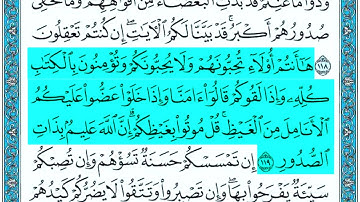 وَدُّوا۟ مَا عَنِتُّمْ قَدْ بَدَتِ ٱلْبَغْضَآءُ مِنْ أَفْوَٰهِهِمْ وَمَا تُخْفِى
صُدُورُهُمْ أَكْبَرُ ۚ قَدْ بَيَّنَّا لَكُمُ ٱلْءَايَـٰتِ ۖ إِن كُنتُمْ تَعْقِلُونَ
١١٨ هَـٰٓأَنتُمْ أُو۟لَآءِ تُحِبُّونَهُمْ وَلَا يُحِبُّونَكُمْ وَتُؤْمِنُونَ بِٱلْكِتَـٰبِ
كُلِّهِۦ وَإِذَا لَقُوكُمْ قَالُوٓا۟ ءَامَنَّا وَإِذَا خَلَوْا۟ عَضُّوا۟ عَلَيْكُمُ
ٱلْأَنَامِلَ مِنَ ٱلْغَيْظِ ۚ قُلْ مُوتُوا۟ بِغَيْظِكُمْ ۗ إِنَّ ٱللَّهَ عَلِيمٌۢ بِذَاتِ
ٱلصُّدُورِ ١١٩ إِن تَمْسَسْكُمْ حَسَنَةٌ تَسُؤْهُمْ وَإِن تُصِبْكُمْ
سَيِّئَةٌ يَفْرَحُوا۟ بِهَا ۖ وَإِن تَصْبِرُوا۟ وَتَتَّقُوا۟ لَا يَضُرُّكُمْ كَيْدُهُمْ